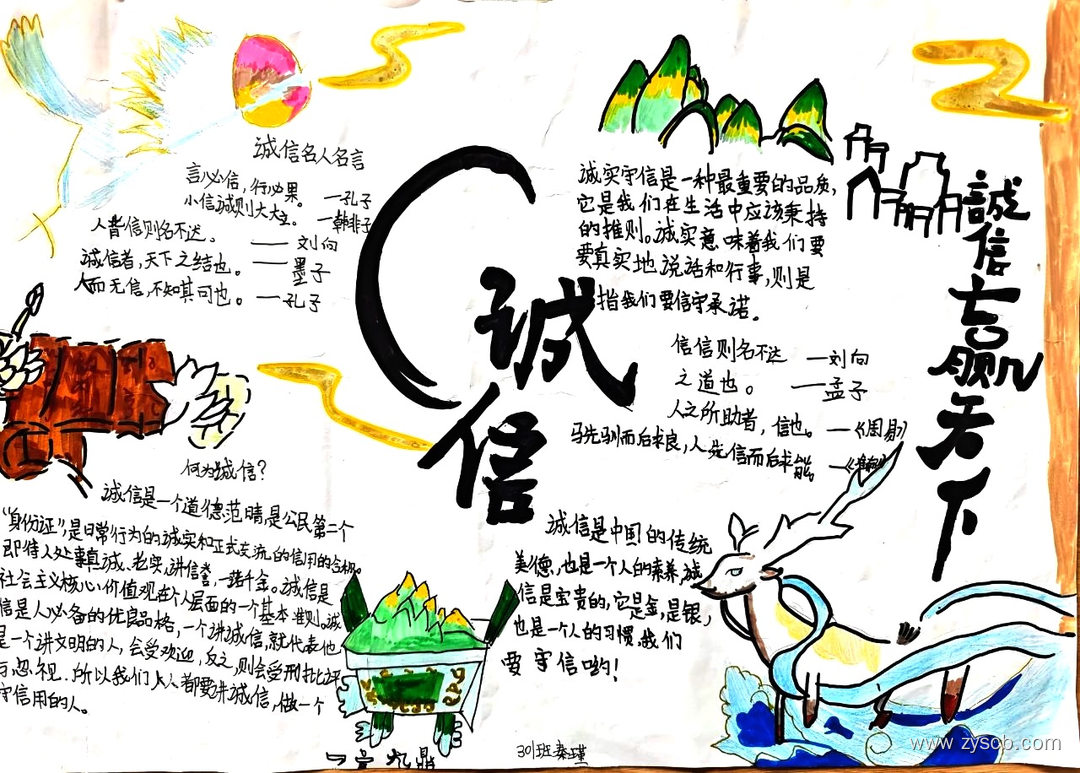 诚信名人名言
言必信,行必果。 —孔子
小信诚则大大立。 —韩非子
人背信则名不达。 —— 刘向
诚信者,天下之结也。 —— 墨子
人而无信,不知其可也。 —孔子
诚信
诚实守信是一种最重要的品质,
它是我们在生活中应该秉持
的推则。诚实意味着我们要
要真实地说话和行事,则是
指我们要信守承诺。
信信则名不达 —刘向
之道也。 —孟子
人之所助者,信也。 —《周易》
马先驯而后求良,人先信而后求能。
誠信赢天下
何为诚信?
诚信是一个道德范畴是公民第二个
“身份证”,是日常行为的诚实和正式交流的信用的合称。
即待人处事真诚、老实、讲信誉,一诺千金。诚信是
社会主义核心价值观在个人层面的一个基本准则,诚
信是人必备的优良品格,一个讲诚信,就代表他
是一个讲文明的人,会受欢迎,反之,则会受批评
与忽视.所以我们人人都要讲诚信,做一个
守信用的人。
诚信是中国的传统
美德,也是一个人的素养,诚
信是宝贵的,它是金,是银,
也是一个人的习惯,我们
要守信哟!
一言九鼎
301班秦瑾
www.zyscb.com